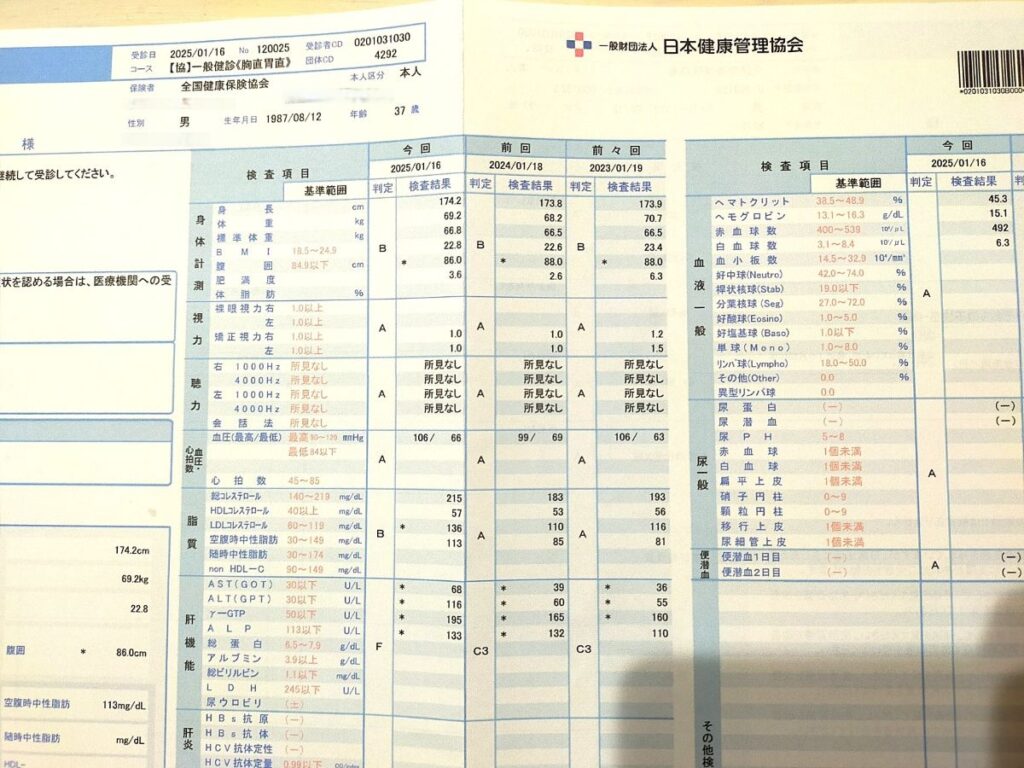 受診日 2025/01/16 No 120025 受診者CD 0201031030
コース 【協】一般健診《胸直胃直》 団体CD 4292
保険者 全国健康保険協会 本人区分 本人
性別 男 生年月日 1987/08/12 年齢 37 歳
様
継続して受診してください。
状を認める場合は、医療機関への受
174.2cm
69.2kg
22.8
腹囲 * 86.0cm
空腹時中性脂肪 113mg/dL
随時中性脂肪 mg/dL
HDL-
一般財団法人 日本健康管理協会
検査項目 今回 前回 前々回
2025/01/16 2024/01/18 2023/01/19
基準範囲 判定 検査結果 判定 検査結果 判定 検査結果
身体計測 B B B
身長 cm 174.2 173.8 173.9
体重 kg 69.2 68.2 70.7
標準体重 kg 66.8 66.5 66.5
BMI 18.5～24.9 22.8 22.6 23.4
腹囲 84.9以下 cm * 86.0 * 88.0 * 88.0
肥満度 3.6 2.6 6.3
体脂肪 %
視力 A A A
裸眼視力右 1.0以上
左 1.0以上
矯正視力右 1.0以上 1.0 1.0 1.2
左 1.0以上 1.0 1.0 1.5
聴力 A A A
右 1000Hz 所見なし 所見なし 所見なし 所見なし
4000Hz 所見なし 所見なし 所見なし 所見なし
左 1000Hz 所見なし 所見なし 所見なし 所見なし
4000Hz 所見なし 所見なし 所見なし 所見なし
会話法 所見なし
血圧・心拍数 A A A
血圧(最高/最低) 最高90～129 mmHg 106/ 66 99/ 69 106/ 63
最低84以下
心拍数 45～85
脂質 B A A
総コレステロール 140～219 mg/dL 215 183 193
HDLコレステロール 40以上 mg/dL 57 53 56
LDLコレステロール 60～119 mg/dL * 136 110 116
空腹時中性脂肪 30～149 mg/dL 113 85 81
随時中性脂肪 30～174 mg/dL
non HDL-C 90～149 mg/dL
肝機能 F C3 C3
AST(GOT) 30以下 U/L * 68 * 39 * 36
ALT(GPT) 30以下 U/L * 116 * 60 * 55
γ-GTP 50以下 U/L * 195 * 165 * 160
ALP 113以下 U/L * 133 * 132 110
総蛋白 6.5～7.9 g/dL
アルブミン 3.9以上 g/dL
総ビリルビン 1.1以下 mg/dL
LDH 245以下 U/L
尿ウロビリ (±)
肝炎
HBs抗原 (-)
HBs抗体 (-)
HCV抗体定性 (-)
HCV抗体定量 0.99以下
検査項目 今回
2025/01/16
基準範囲 判定 検査結果 判
血液一般 A
ヘマトクリット 38.5～48.9 % 45.3
ヘモグロビン 13.1～16.3 g/dL 15.1
赤血球数 400～539 10⁴/μL 492
白血球数 3.1～8.4 10³/μL 6.3
血小板数 14.5～32.9 10⁴/mm³
好中球(Neutro) 42.0～74.0 %
桿状核球(Stab) 19.0以下 %
分葉核球(Seg) 27.0～72.0 %
好酸球(Eosino) 1.0～5.0 %
好塩基球(Baso) 1.0以下 %
単球(Mono) 1.0～8.0 %
リンパ球(Lympho) 18.0～50.0 %
その他(Other) 0.0 %
異型リンパ球 0.0
尿一般 A
尿蛋白 (-) (-)
尿潜血 (-) (-)
尿PH 5～8
赤血球 1個未満
白血球 1個未満
扁平上皮 1個未満
硝子円柱 0～9
顆粒円柱 0～9
移行上皮 1個未満
尿細管上皮 1個未満
便潜血 A
便潜血1日目 (-) (-)
便潜血2日目 (-) (-)
その他検